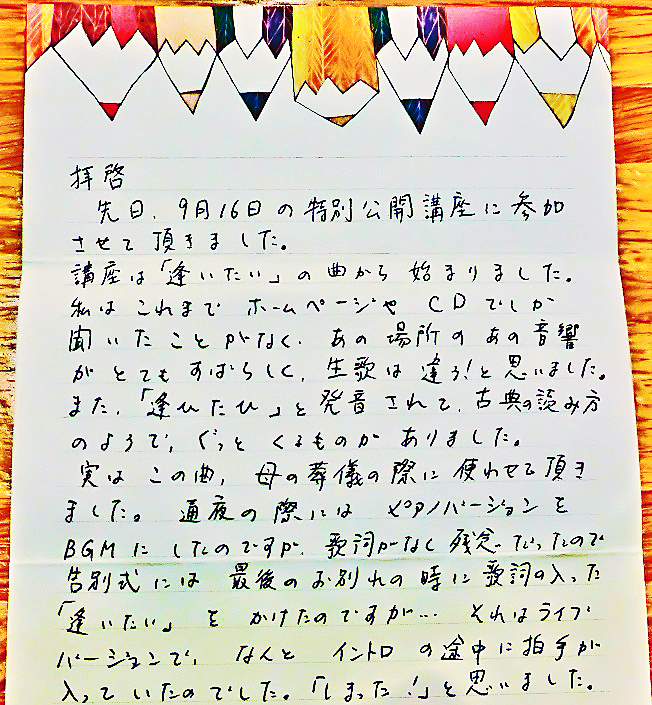 拝啓
先日、9月16日の特別公開講座に参加
させて頂きました。
講座は「逢いたい」の曲から始まりました。
私はこれまでホームページやCDでしか
聞いたことがなく、あの場所のあの音響
がとてもすばらしく、生歌は違う!と思いました。
また、「逢ひたひ」と発音されて、古典の読み方
のようで、ぐっとくるものがありました。
実はこの曲、母の葬儀の際に使わせて頂き
ました。通夜の際にはピアノバージョンを
BGMにしたのですが、歌詞がなく残念だったので
告別式には最後のお別れの時に歌詞の入った
「逢いたい」をかけたのですが… それはライブ
バージョンで、なんとイントロの途中に拍手が
入っていたのでした。「しまった!」と思いました。